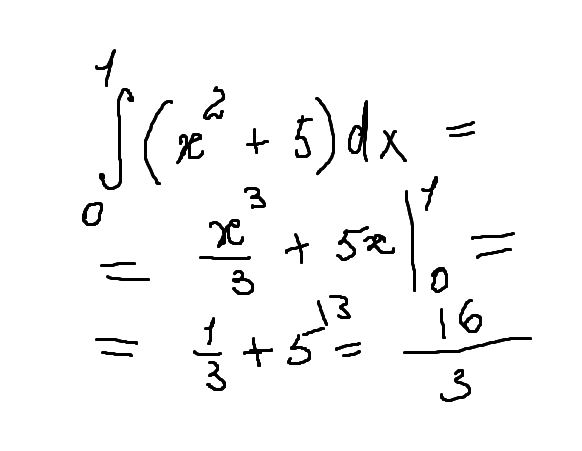 ∫₀¹ (x² + 5) dx =
= x³/3 + 5x |₀¹ =
= 1/3 + 5^\3 = 16/3